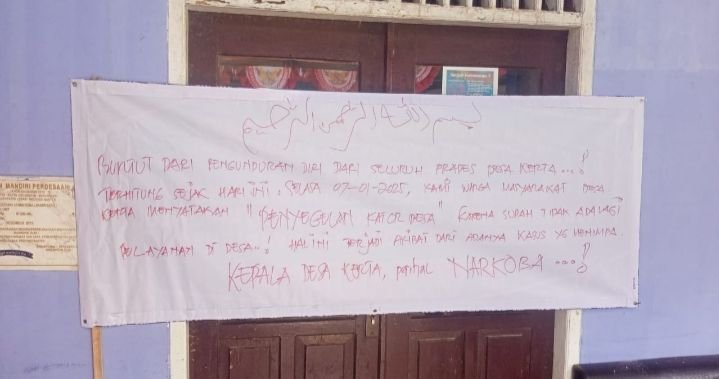 بسم الله الرحمن الرحيم
BUNTUT DARI PENGUNDURAN DIRI DARI SELURUH PRADES DESA KERTA...!
TERHITUNG SEJAK HARI INI, SELASA 07-01-2025, KAMI WARGA MASYARAKAT DESA
KERTA MENYATAKAN "PENYEGELAN KATOR DESA" KARENA SUDAH TIDAK ADA LAGI
PELAYANAN DI DESA..! HAL INI TERJADI AKIBAT DARI ADANYA KASUS YG MENIMPA
KEPALA DESA KERTA, perihal NARKOBA ...!
MANDIRI PERDESAAN